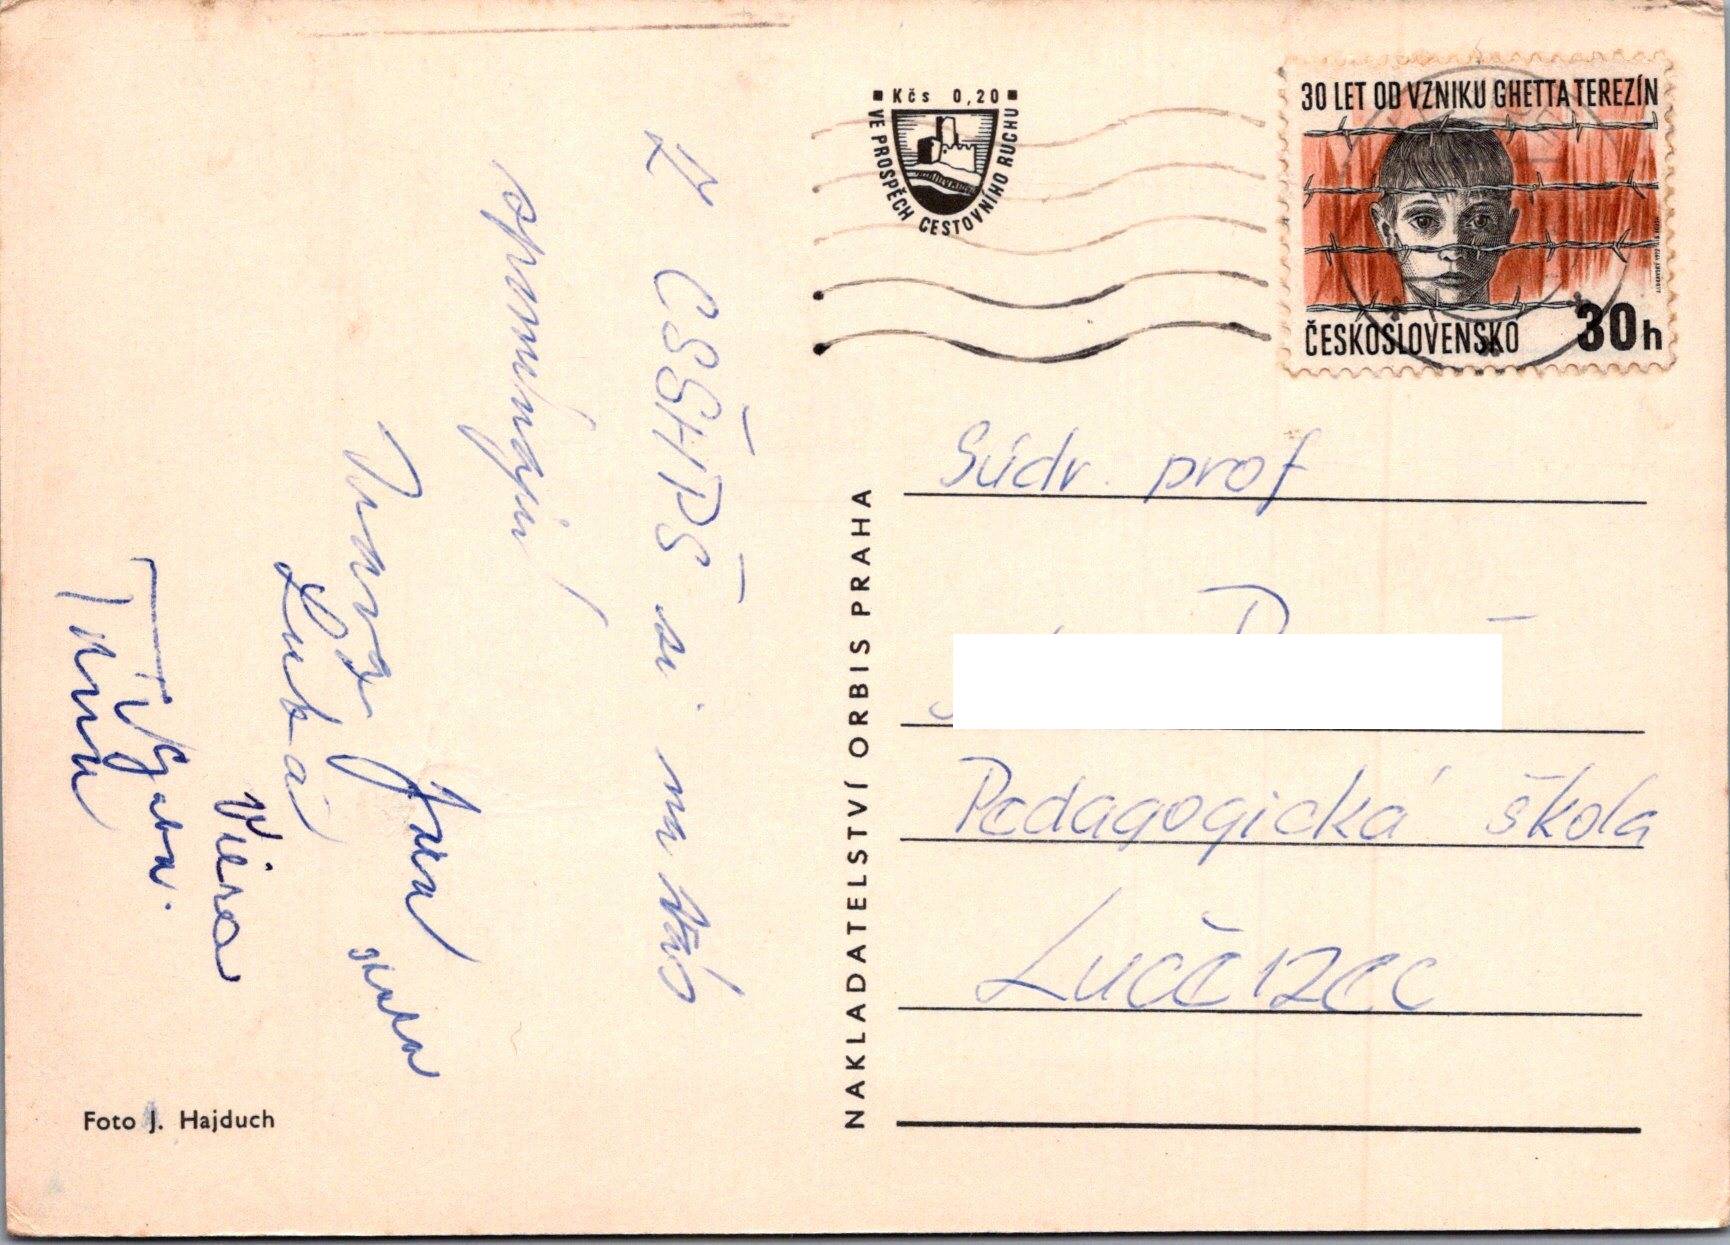 Kčs 0,20
VE PROSPĚCH CESTOVNÍHO RUCHU
30 LET OD VZNIKU GHETTA TEREZÍN
ČESKOSLOVENSKO 30h
Z ČSŠHPŠ si na Vás
spomínajú
Jana
Viera
Gaba.
NAKLADATELSTVÍ ORBIS PRAHA
Súdr. prof
Pedagogická škola
Lučenec
Foto J. Hajduch